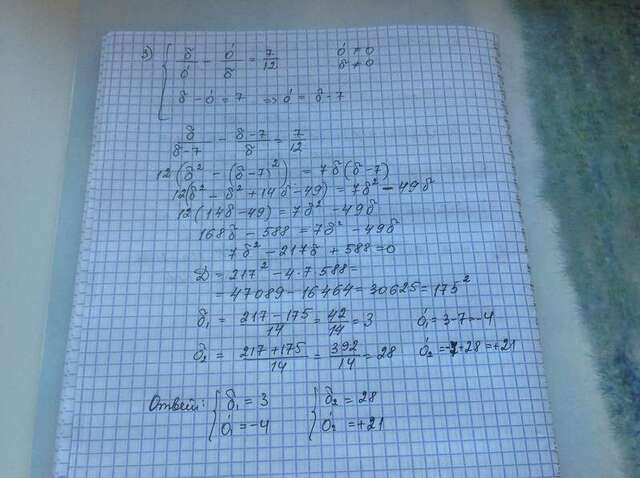 3) { δ/ó - ó/δ = 7/12 ó ≠ 0
δ ≠ 0
δ - ó = 7 => ó = δ - 7
δ/(δ-7) - (δ-7)/δ = 7/12
12(δ² - (δ-7)²) = 7δ(δ-7)
12(δ² - δ² + 14δ - 49) = 7δ² - 49δ
12(14δ - 49) = 7δ² - 49δ
168δ - 588 = 7δ² - 49δ
7δ² - 217δ + 588 = 0
D = 217² - 4·7·588 =
= 47089 - 16464 = 30625 = 175²
δ₁ = (217-175)/14 = 42/14 = 3 ó₁ = 3-7 = -4
δ₂ = (217+175)/14 = 392/14 = 28 ó₂ = -7+28 = +21
Ответ: { δ₁ = 3 { δ₂ = 28
ó₁ = -4 ó₂ = +21